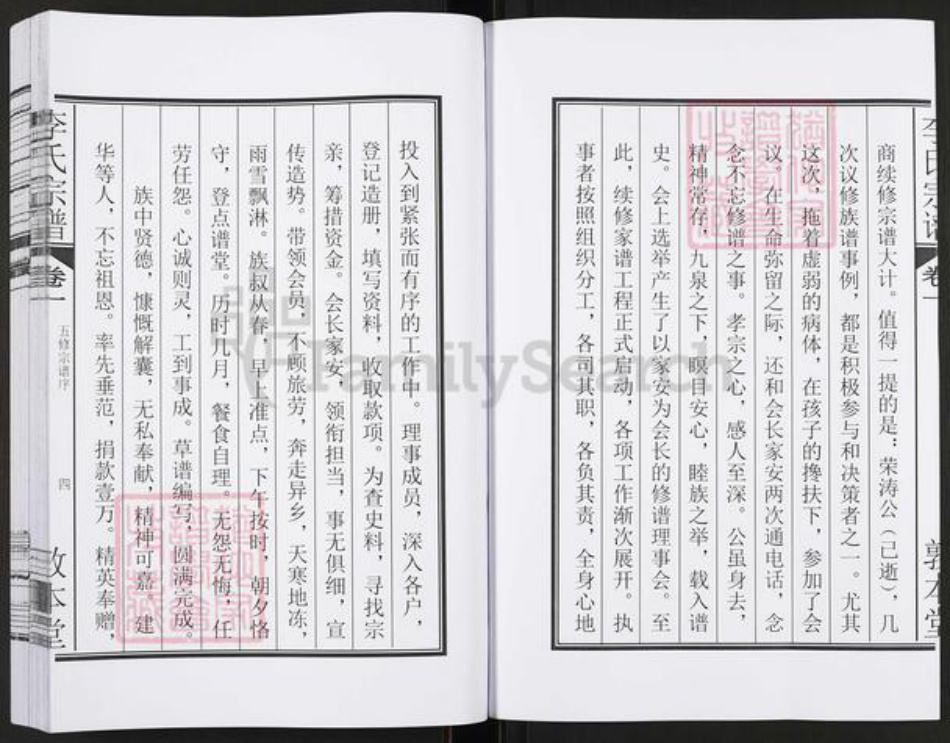 商续修宗谱大计。值得一提的是：荣涛公（己逝），几
次议修族谱事例，都是积极参与和决策者之一。尤其
这次，拖着虚弱的病体，在孩子的搀扶下，参加了会
议。在生命弥留之际，还和会长家安两次通电话，念
念不忘修谱之事。孝宗之心，感人至深。公虽身去，
精神常存，九泉之下，瞑目安心，睦族之举，载入谱
史。会上选举产生了以家安为会长的修谱理事会。至
此，续修家谱工程正式启动，各项工作渐次展开。执
事者按照组织分工，各司其职，各负其责，全身心地
投入到紧张而有序的工作中。理事成员，深入各户，
登记造册，填写资料，收取款项。为查史料，寻找宗
亲，筹措资金。会长家安，领衔担当，事无俱细，宣
传造势。带领会员，不顾旅劳，奔走异乡，天寒地冻，
雨雪飘淋。族叔从春，早上准点，下午按时，朝夕恪
守，登点谱堂。历时几月，餐食自理。无怨无悔，任
劳任怨。心诚则灵，工到事成。草谱编写，圆满完成。
族中贤德，慷慨解囊，无私奉献，精神可嘉，建
华等人，不忘祖恩。率先垂范，捐款壹万。精英奉赠，
李氏宗谱
卷一
五修宗谱序
四
敦本堂
FamilySearch